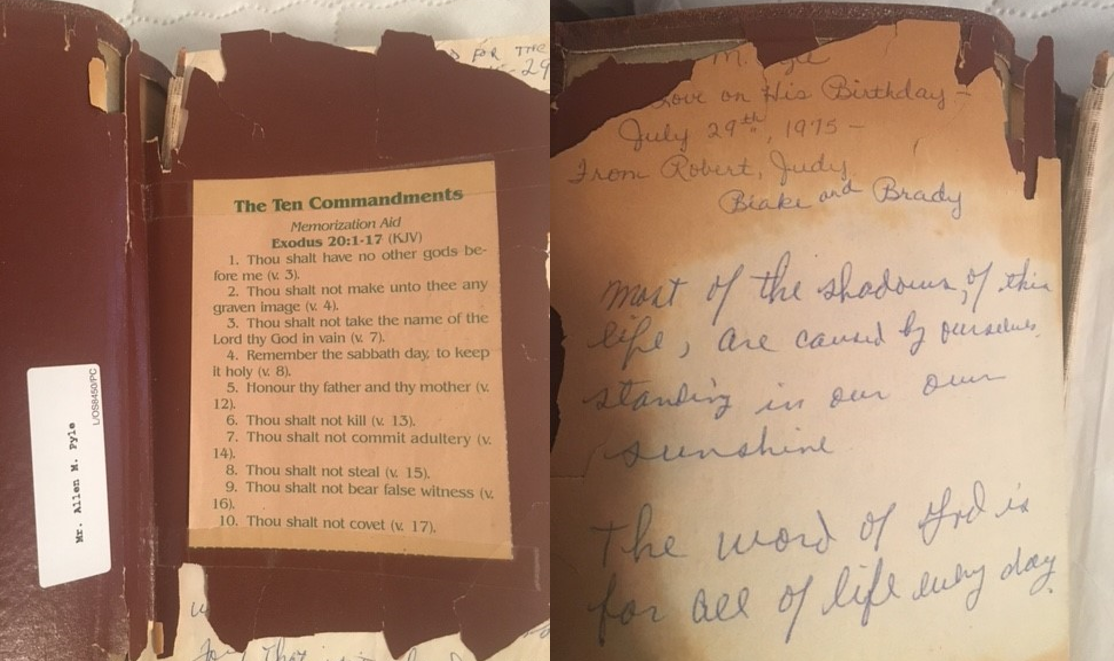 FOR THE
-29
Mr. Allen M. Pyle
L/OS8450/PC
The Ten Commandments
Memorization Aid
Exodus 20:1-17 (KJV)
1. Thou shalt have no other gods be-
fore me (v. 3).
2. Thou shalt not make unto thee any
graven image (v. 4).
3. Thou shalt not take the name of the
Lord thy God in vain (v. 7).
4. Remember the sabbath day, to keep
it holy (v. 8).
5. Honour thy father and thy mother (v.
12).
6. Thou shalt not kill (v. 13).
7. Thou shalt not commit adultery (v.
14).
8. Thou shalt not steal (v. 15).
9. Thou shalt not bear false witness (v.
16).
10. Thou shalt not covet (v. 17).
M.
Love on His Birthday -
July 29th, 1975 -
From Robert, Judy
Blake and Brady
Most of the shadows, of this
life, are caused by ourselves
standing in our own
sunshine
The word of God is
for all of life every day.